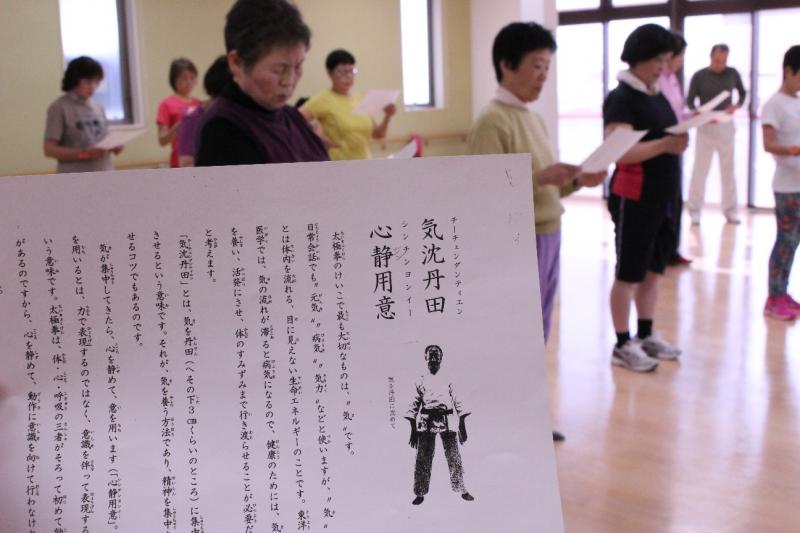 チーチェンダンティエン
気沈丹田
シンチンヨンイー
心静用意
気を丹田に沈めて
太極拳のけいこで最も大切なものは、〝気〟です。
日常会話でも〝元気〟〝病気〟〝気力〟などと使いますが、〝気〟
とは体内を流れる、目に見えない生命エネルギーのことです。東洋
医学では、気の流れが滞ると病気になるので、健康のためには、気
を養い、活発にさせ、体のすみずみまで行き渡らせることが必要だ
と考えます。
「気沈丹田」とは、気を丹田(へその下3cmくらいのところ)に集中
させるという意味です。それが、気を養う方法であり、精神を集中
せるコツでもあるのです。
気が集中してきたら、心を静めて、意を用います(「心静用意」)。
を用いるとは、力で表現するのではなく、意識を伴って表現する
いう意味です。太極拳は、体・心・呼吸の三者がそろって初めて
があるのですから、心を静めて、動作に意識を向けて行わなけ